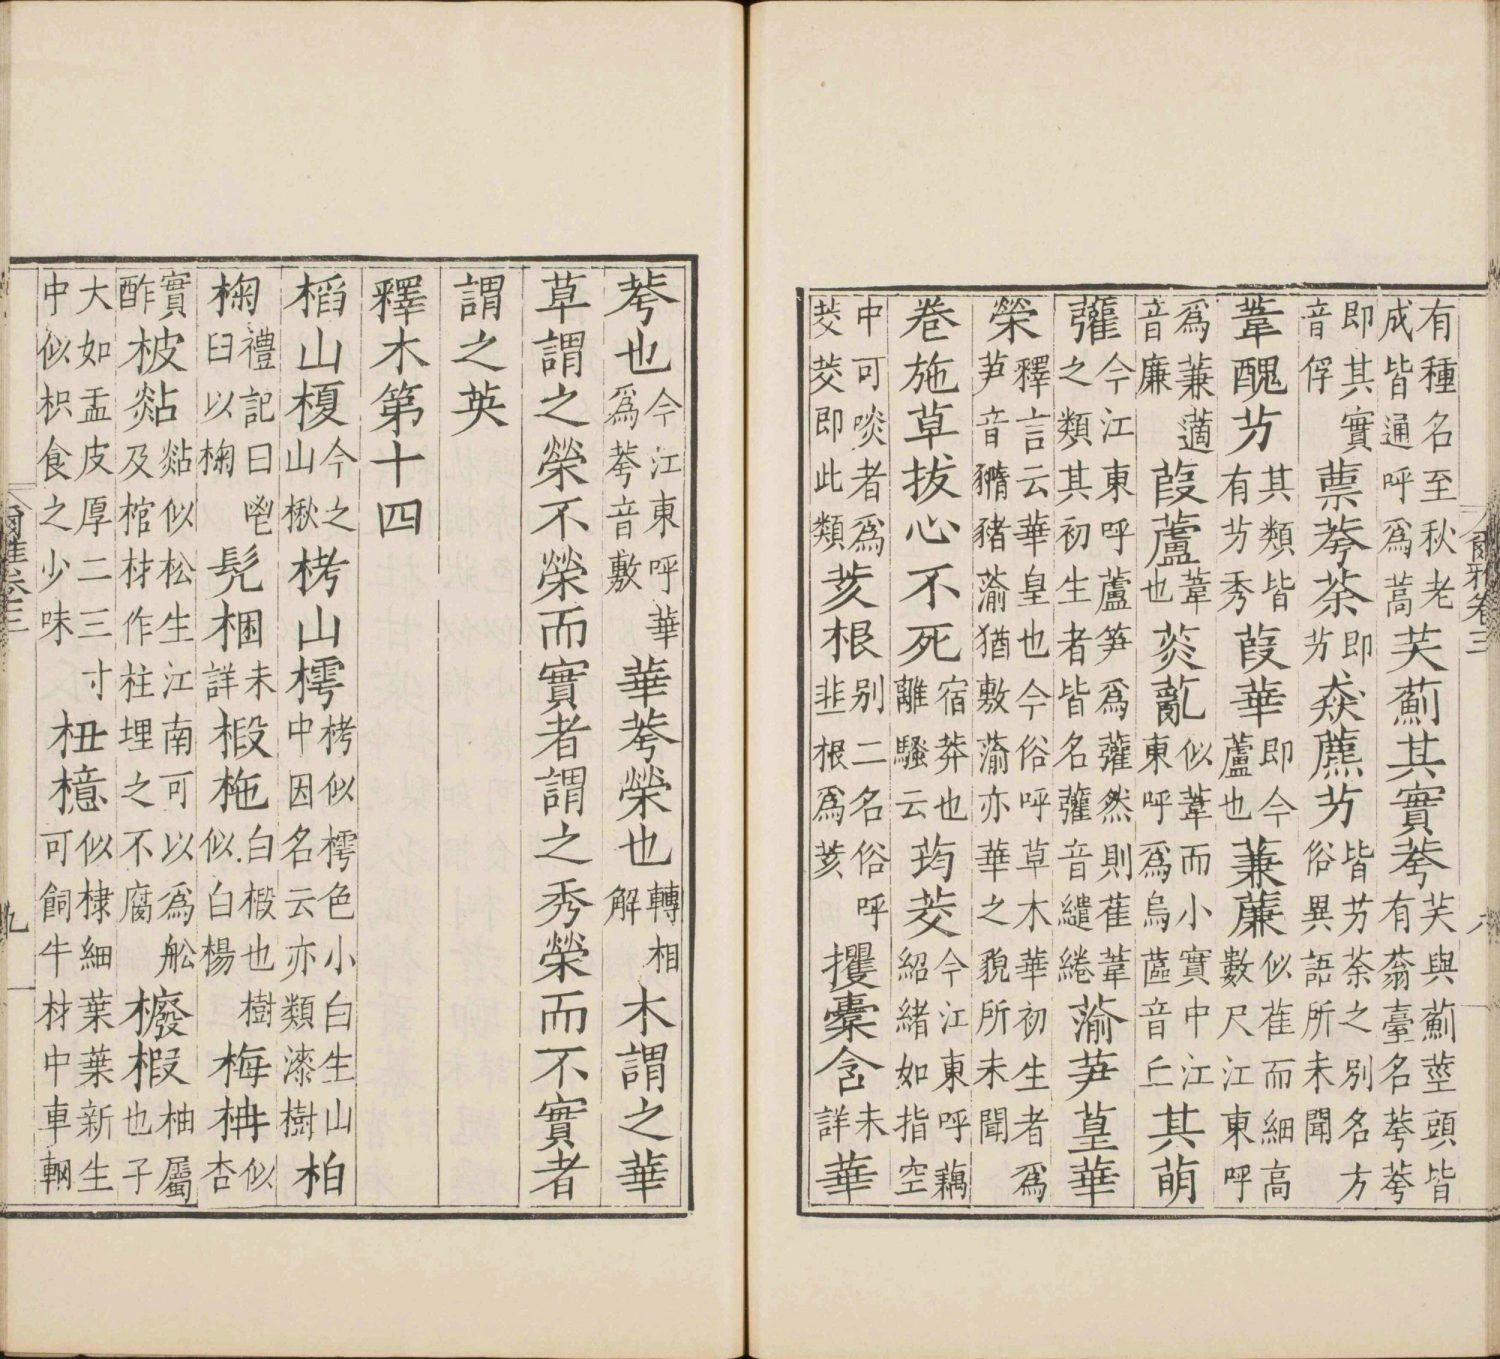 有種名至秋老成皆通呼爲蒿芙薊其實荂芙與薊莖頭皆有蓊臺名荂荂
即其實音俘藨荂荼即芀猋藨芀皆芀荼之別名方俗異語所未聞
葦醜芀其類皆有芀秀葭華即今蘆也蒹薕似萑而細高數尺江東呼
爲蒹薖音廉葭蘆葦也菼薍似葦而小實中江東呼爲烏蓲音丘其萌
虇今江東呼蘆筍爲虇然則萑葦之類其初生者皆名虇音繾綣蕍芛葟華
榮釋言云華皇也今俗呼草木華初生者爲芛音豨豬蕍猶敷蕍亦華之貌所未聞
卷施草拔心不死宿莽也離騷云荺茭今江東呼藕紹緒如指空
中可啖者爲茭茭即此類荄根別二名俗呼韭根爲荄攫橐含未詳華
爾雅卷三
八
荂也今江東呼華爲荂音敷華荂榮也轉相解木謂之華
草謂之榮不榮而實者謂之秀榮而不實者
謂之英
釋木第十四
稻山榎今之山楸栲山樗栲似樗色小白生山中因名云亦類漆樹柏
椈禮記曰鬯臼以椈髡梱未詳椴柂白椴也樹似白楊梅柟似杏
實酢柀煔煔似松生江南可以爲船及棺材作柱埋之不腐櫠椵柚屬也子
大如盂皮厚二三寸中似枳食之少味杻檍似棣細葉葉新生可飼牛材中車輞
爾雅卷三
九